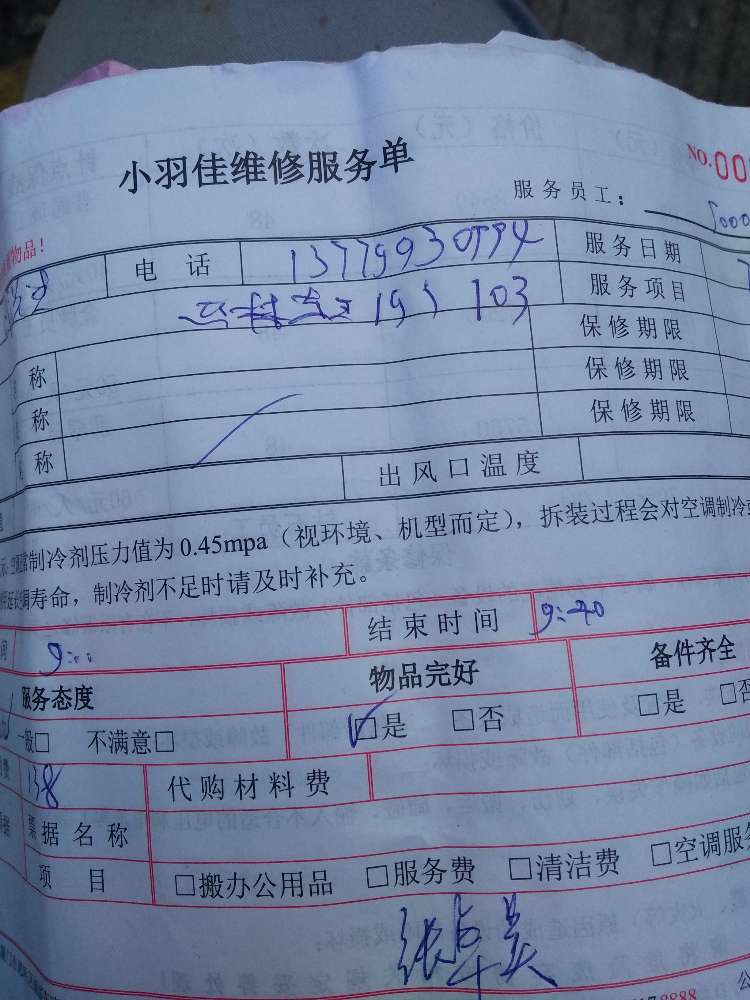 小羽佳维修服务单
NO.00
服务员工：
物品！
电话 服务日期
195 103 服务项目
称 保修期限
称 保修期限
称 保修期限
出风口温度
制冷剂压力值为0.45mpa（视环境、机型而定），拆装过程会对空调制冷
寿命，制冷剂不足时请及时补充。
9:00 结束时间 9:40
服务态度 物品完好 备件齐全
一般□ 不满意□ □是 □否 □是 □否
138 代购材料费
票据名称
项目 □搬办公用品 □服务费 □清洁费 □空调服
8888